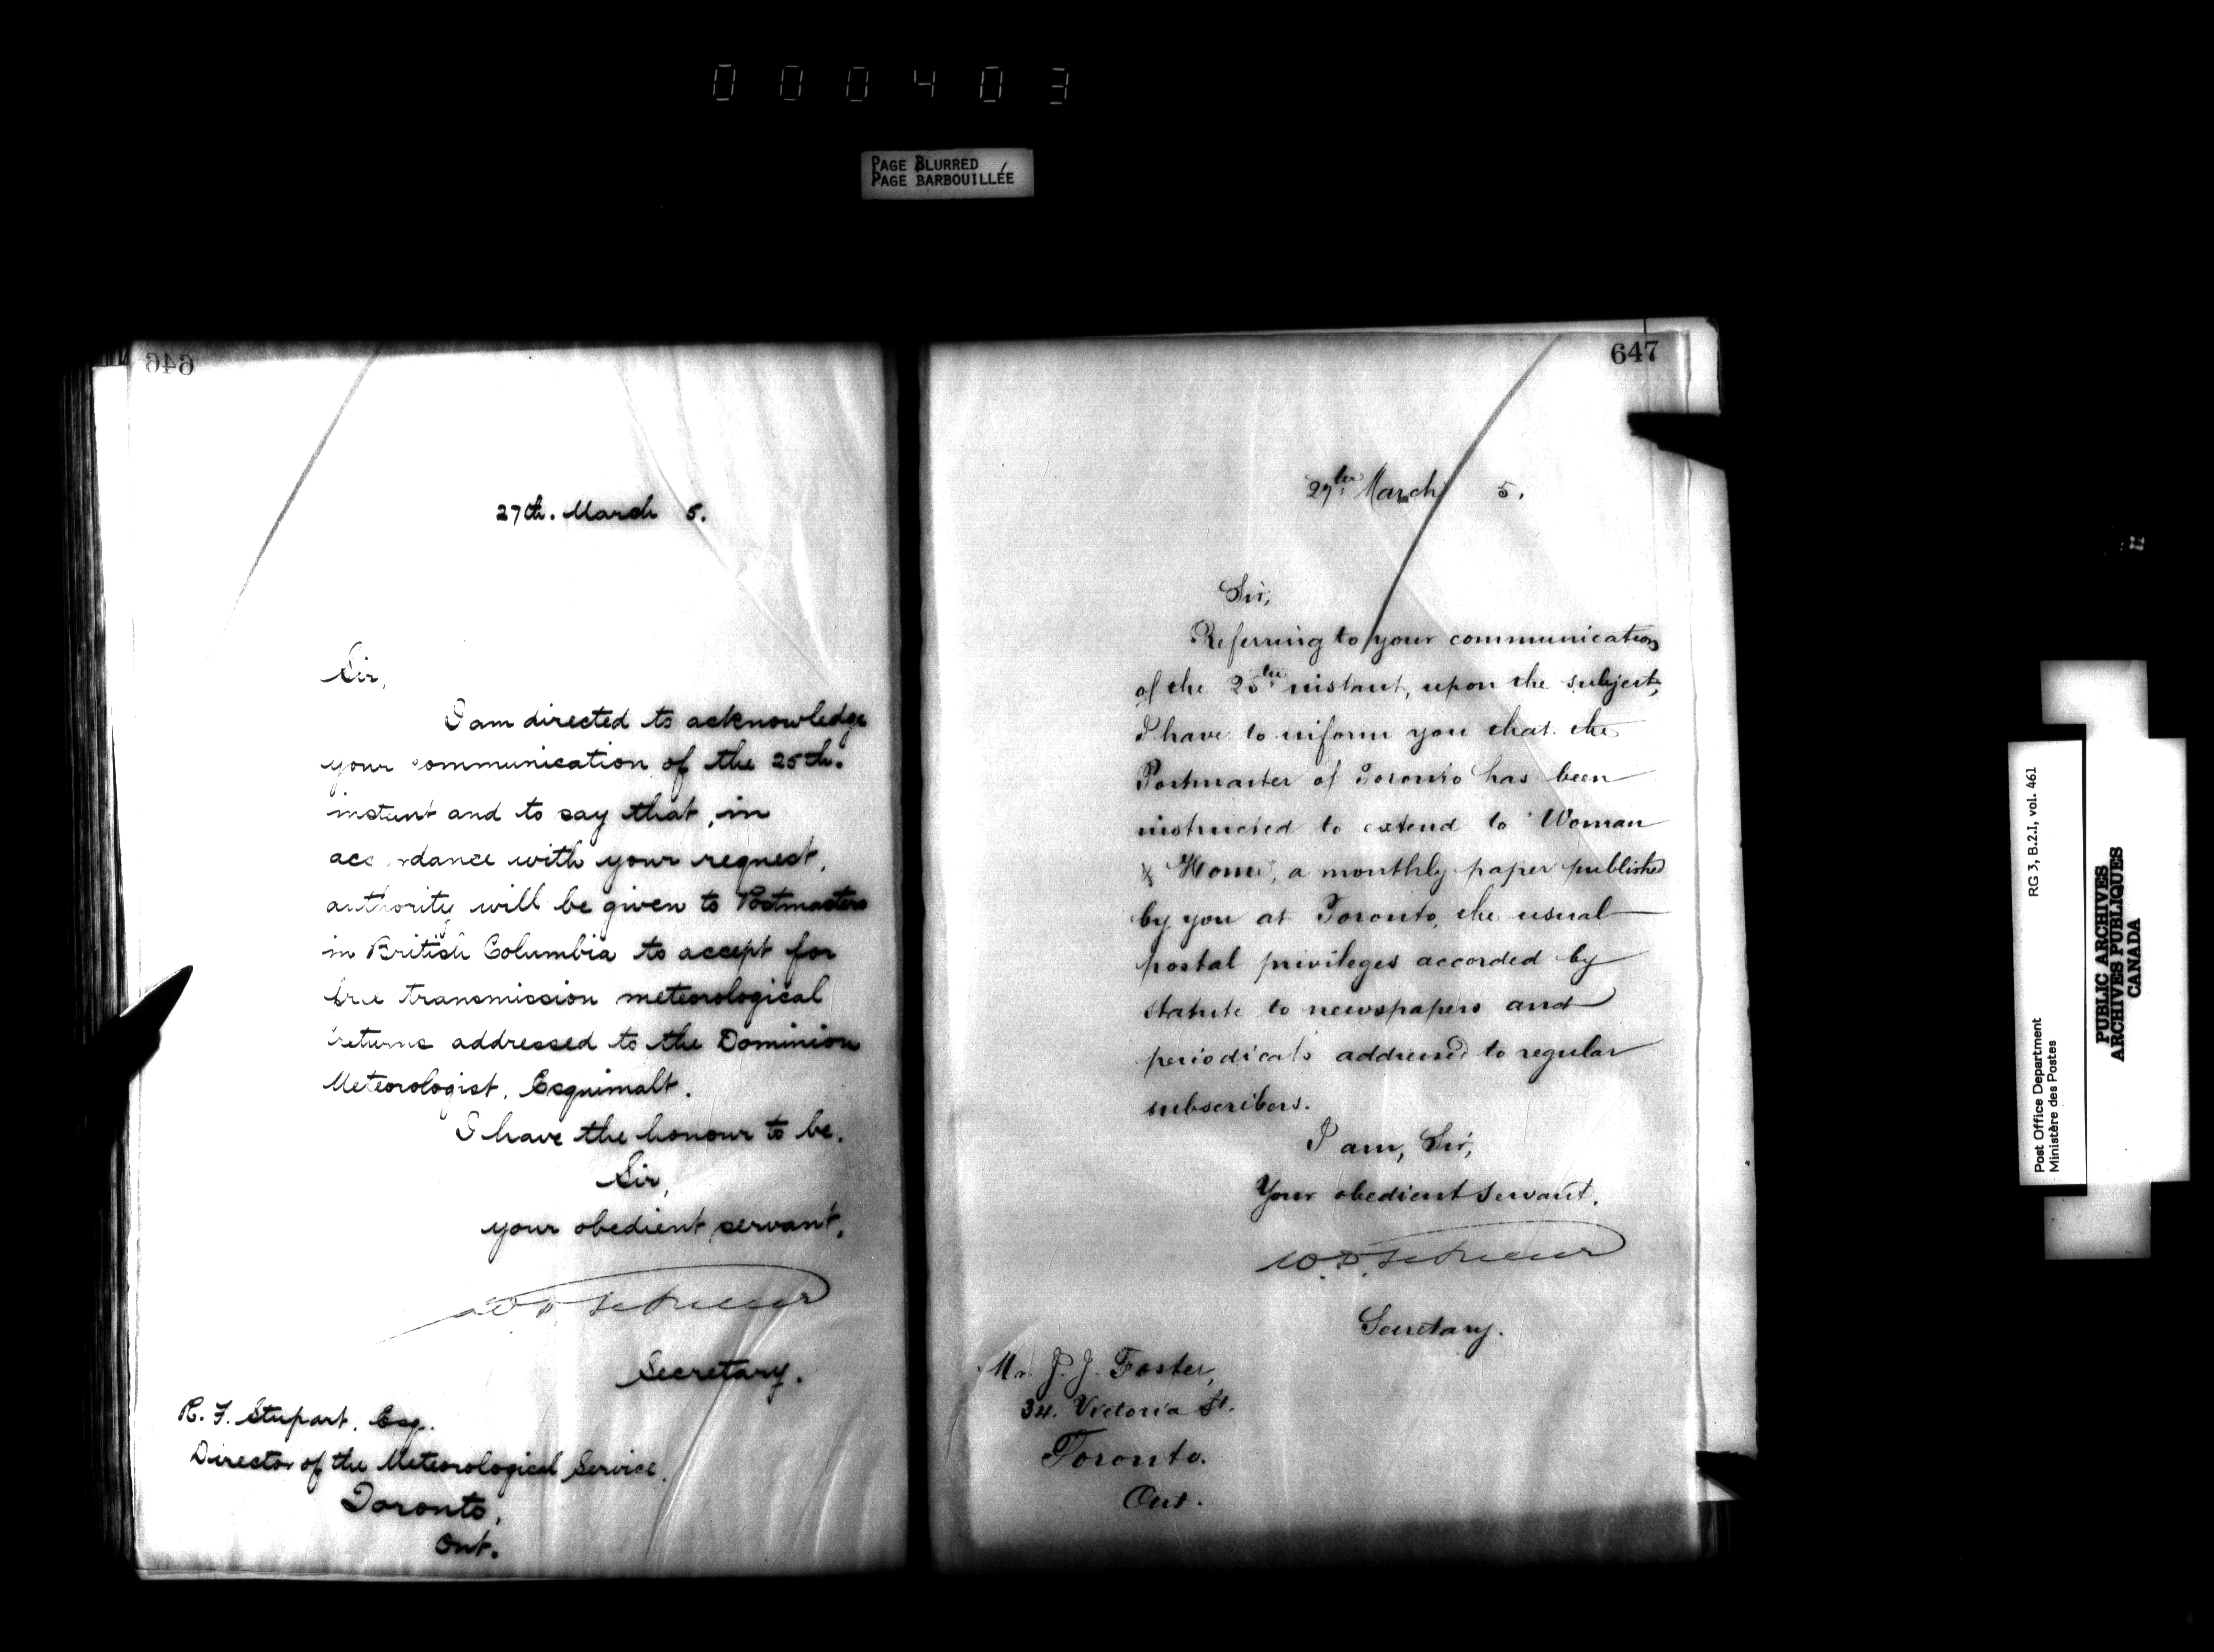 000403
PAGE BLURRED
PAGE BARBOUILLÉE
646
27th. March 5.
Sir,
I am directed to acknowledge
your communication of the 25th.
instant and to say that, in
accordance with your request,
authority will be given to Postmasters
in British Columbia to accept for
free transmission meteorological
returns addressed to the Dominion
Meteorologist, Esquimalt.
I have the honour to be.
Sir,
your obedient servant,
Secretary.
R. F. Stupart, Esq.
Director of the Meteorological Service.
Toronto,
Ont.
647
27th March 5.
Sir,
Referring to your communication
of the 25th instant, upon the subject,
I have to inform you that the
Postmaster of Toronto has been
instructed to extend to "Woman
& Home", a monthly paper published
by you at Toronto, the usual
postal privileges accorded by
statute to newspapers and
periodicals addressed to regular
subscribers.
I am, Sir,
Your obedient servant.
Secretary.
Mr. J. J. Foster,
34. Victoria St.
Toronto.
Ont.
RG 3, B.2.I, vol. 461
Post Office Department
Ministère des Postes
PUBLIC ARCHIVES
ARCHIVES PUBLIQUES
CANADA